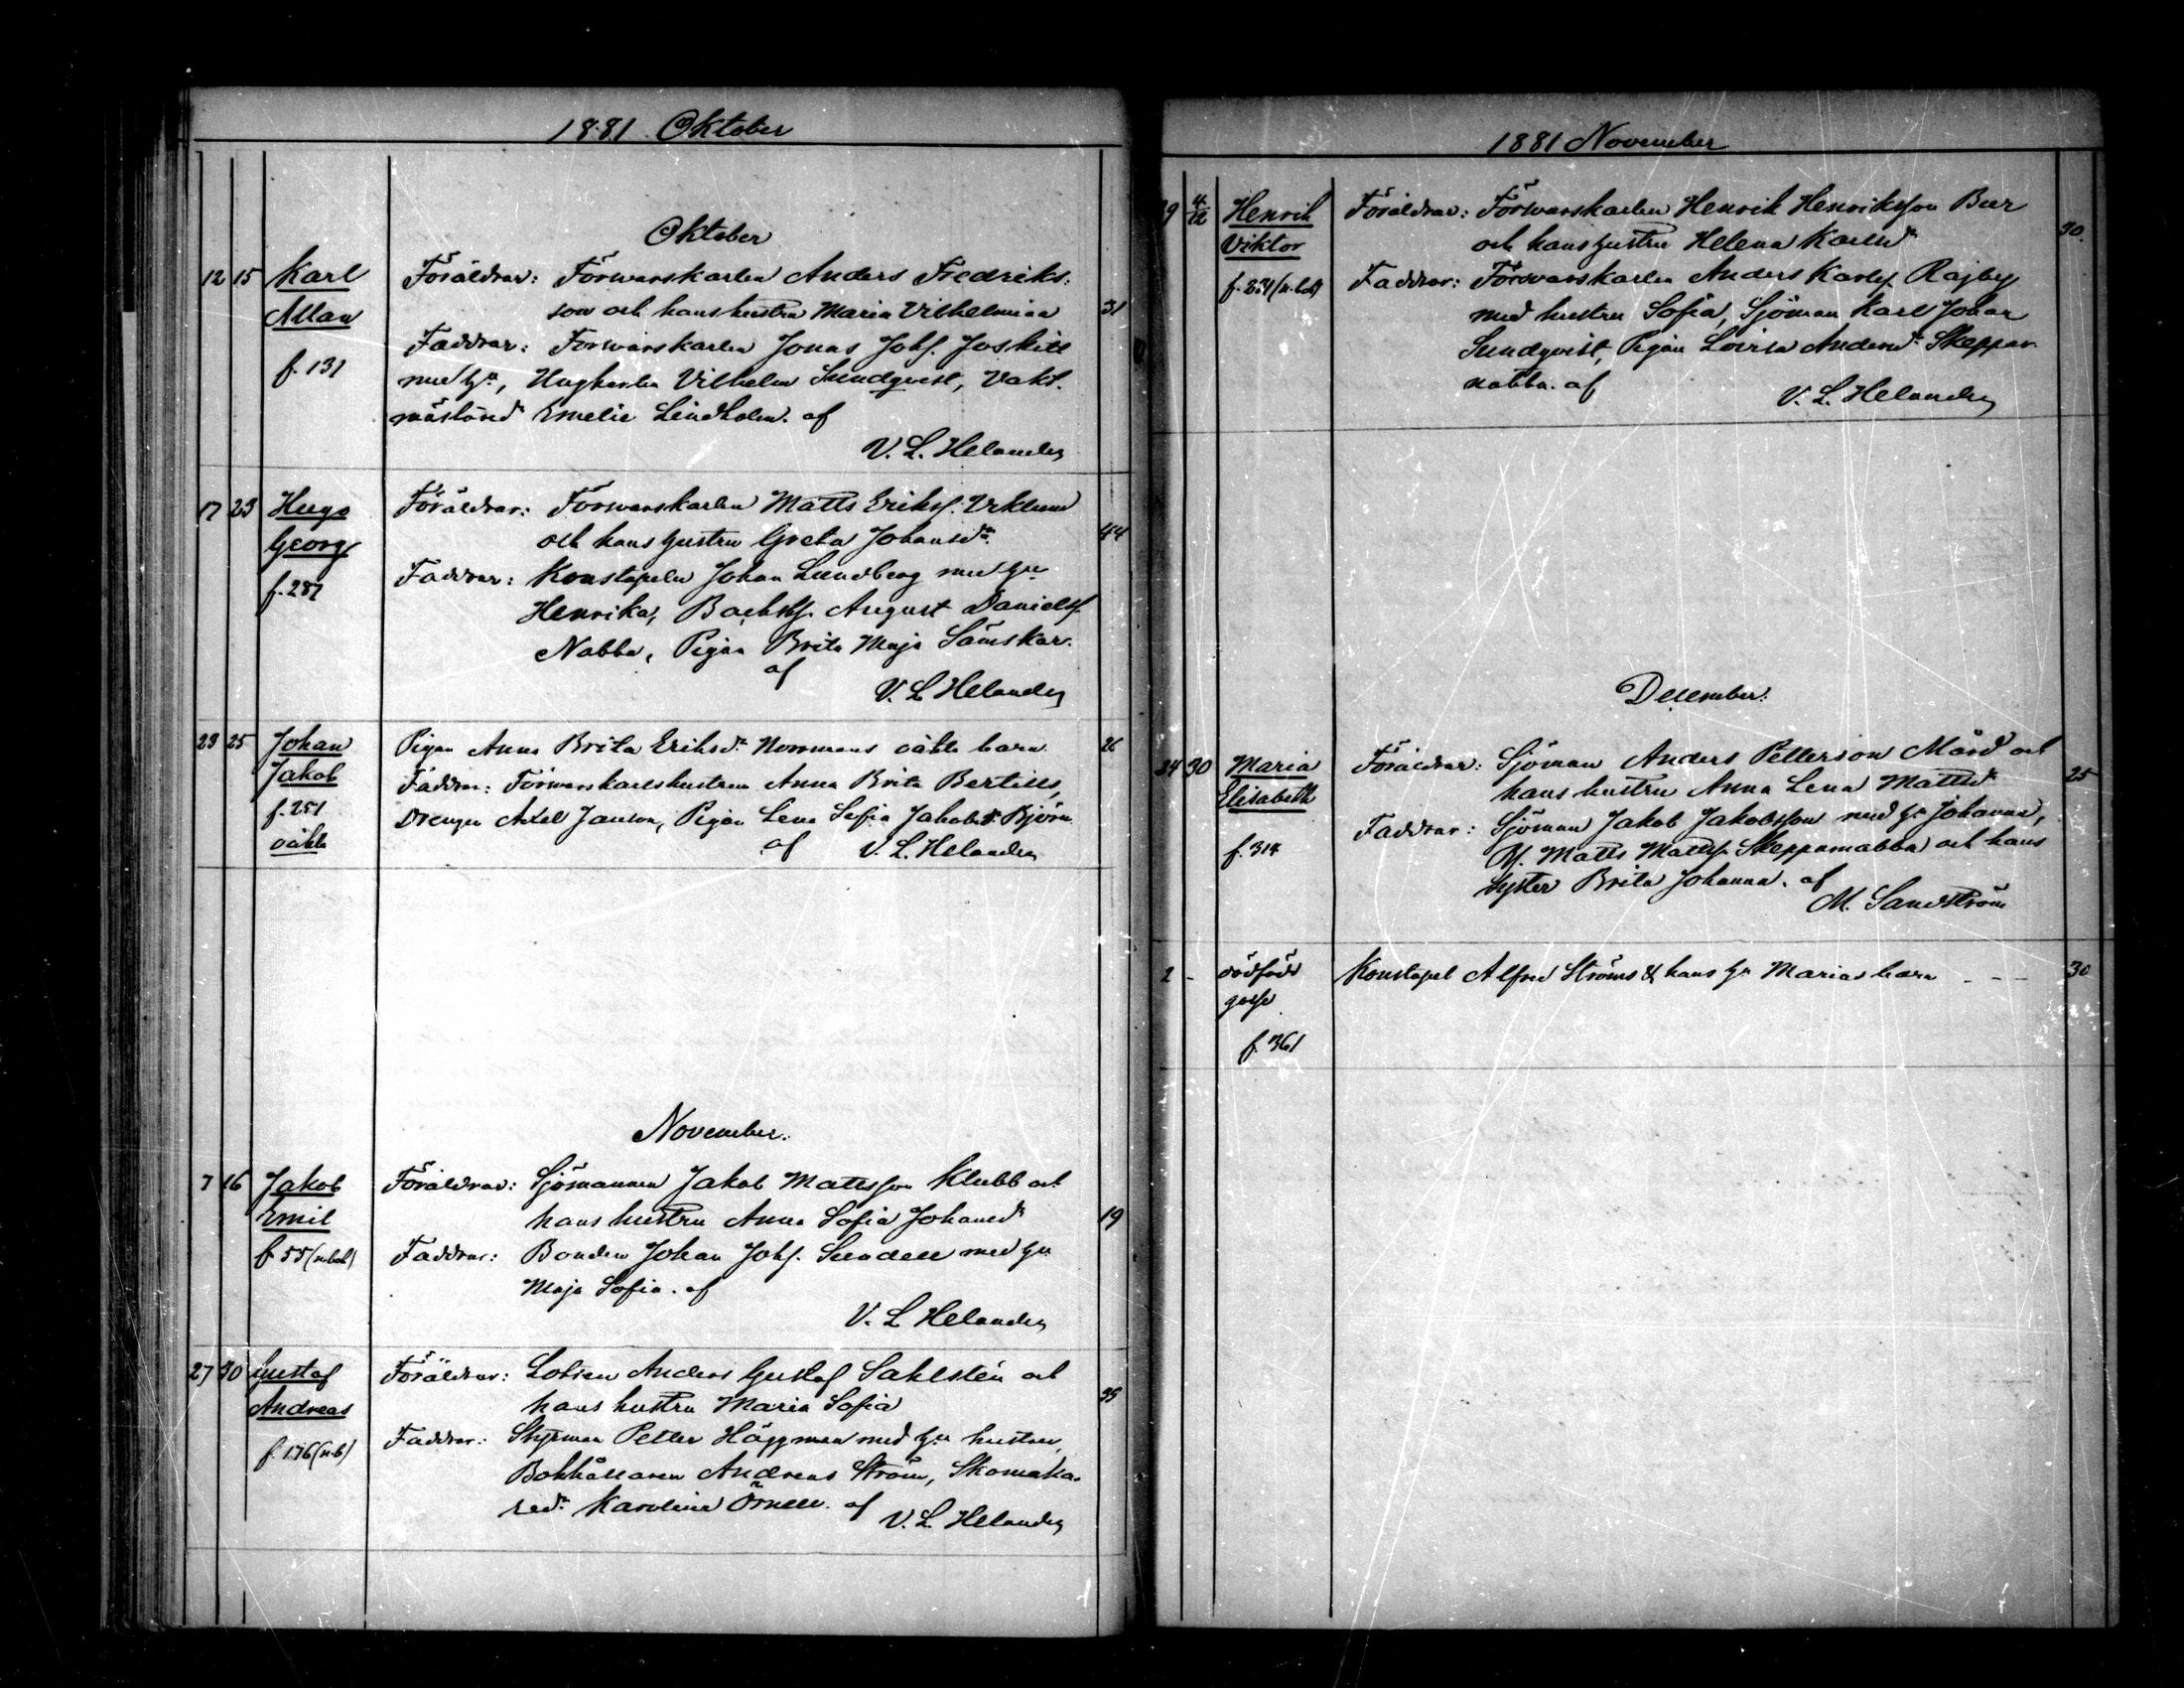 1881 Oktober
Oktober
12 15 Karl Föräldrar: Förwarskarlen Anders Fredriks:
Allan son och hans hustru Maria Vilhelmina 31
f. 131 Faddrar: Förwarskarlen Jonas Johs.
med hu, Vilhelm Sundqvist, Vakt.
Emelie Lindholm. af
V. L. Helander
17 23 Hugo Föräldrar: Förwarskarlen Matts Eriks.
Georg och hans hustru Greta Johansdr. 44
f. 287 Faddrar: Konstapeln Johan Lundberg med hu
Henrika, August Daniels.
Nabba, Pigan Brita Maja Sämskar.
af
V. L. Helander
23 25 Johan Pigan Anna Brita Eriksdr Norrmans oäkta barn. 26
Jakob Faddrar: Förwarskarlshustrun Anna Brita Bertills,
f. 251 Drengen Axel Janson, Pigan Lena Sofia Jakobsdr Björn
oäkta af V. L. Helander
November.
7 16 Jakob Föräldrar: Sjömannen Jakob Mattsson Klubb och
Emil hans hustru Anna Sofia Johansdr 19
f. 55 Faddrar: Bonden Johan Johs. Sundell med hu
Maja Sofia. af
V. L. Helander
27 30 Gustaf Föräldrar: Lotsen Anders Gustaf Sahlstén och
Andreas hans hustru Maria Sofia 39
f. 176 (n.b) Faddrar: Styrman Petter Häggman med hu hustru,
Bokhållaren Andreas Ström, Skomaka-
redr Karolina Örnell. af
V. L. Helander
1881 November
29 4/12 Henrik Föräldrar: Förwarskarlen Henrik Henriksson Bur
Viktor och hans hustru Helena Karlsdr 30.
Faddrar: Förwarskarlen Anders Karls. Rajby
med hustru Sofia, Sjöman Karl Johan
Sundqvist, Pigan Lovisa Andersdr Skeppar-
nabba. af
V. L. Helander
December.
24 30 Maria Föräldrar: Sjöman Anders Petterson Mård och
Elisabeth hans hustru Anna Lena Mattsdr 25
f. 314 Faddrar: Sjöman Jakob Jakobsson med hu Johanna,
Matts Matts. Skepparnabba och hans
syster Brita Johanna. af
M. Sandström
2 - dödfödd Konstapel Alfred Ströms & hans hu Marias barn - - - 30
gosse
f. 361